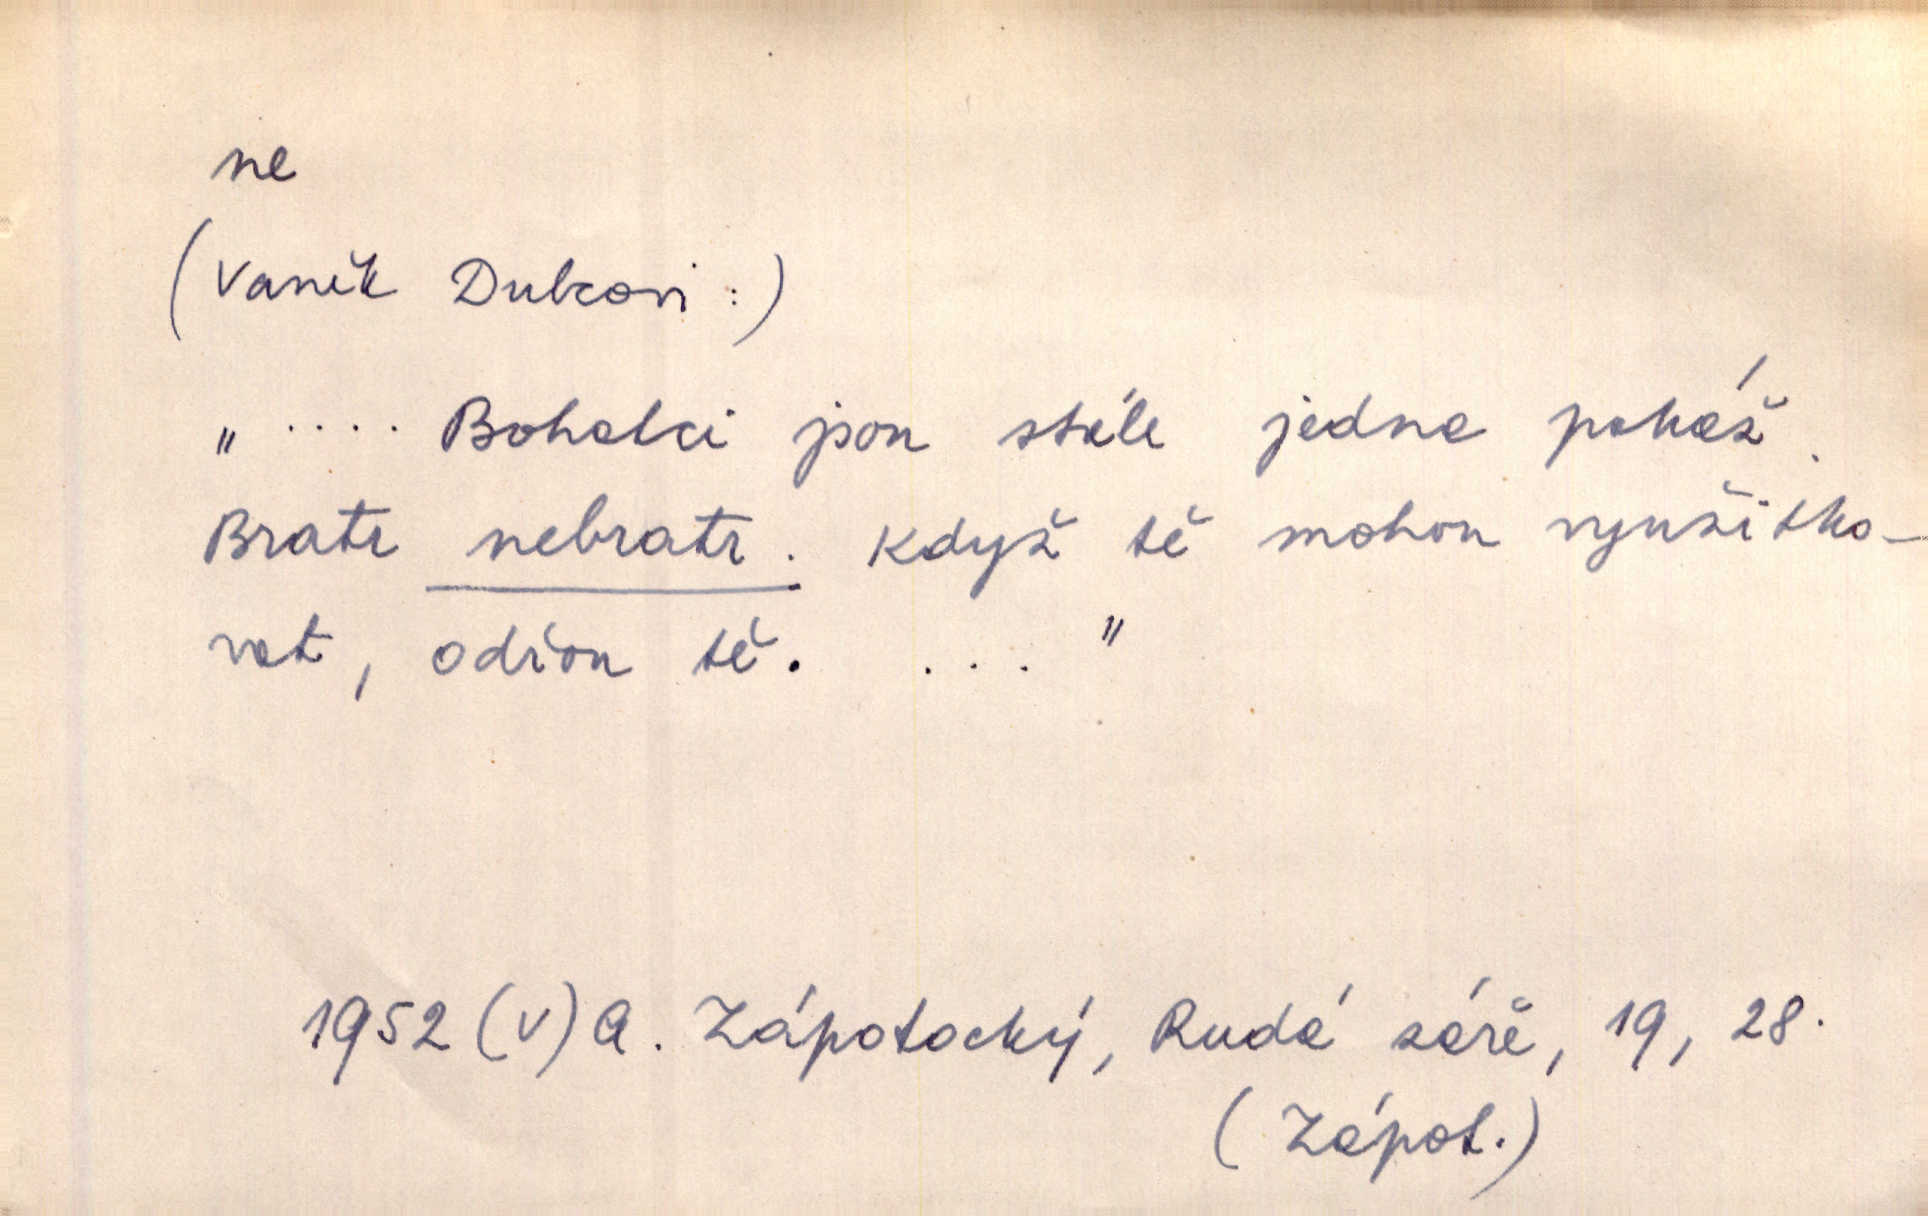 ne
(Vaněk Dubcovi:)
„.... Boháči jsou stále jedna pakáž.
Bratr nebratr. Když tě mohou využitko-
vat, odřou tě. ... "
1952 (V) A. Zápotocký, Rudá záře, 19, 28.
(Zápot.)